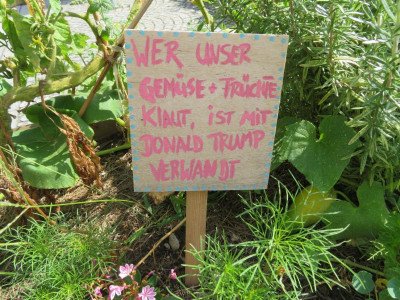 WER UNSER
GEMÜSE + FRÜCHTE
KLAUT, IST MIT
DONALD TRUMP
VERWANDT